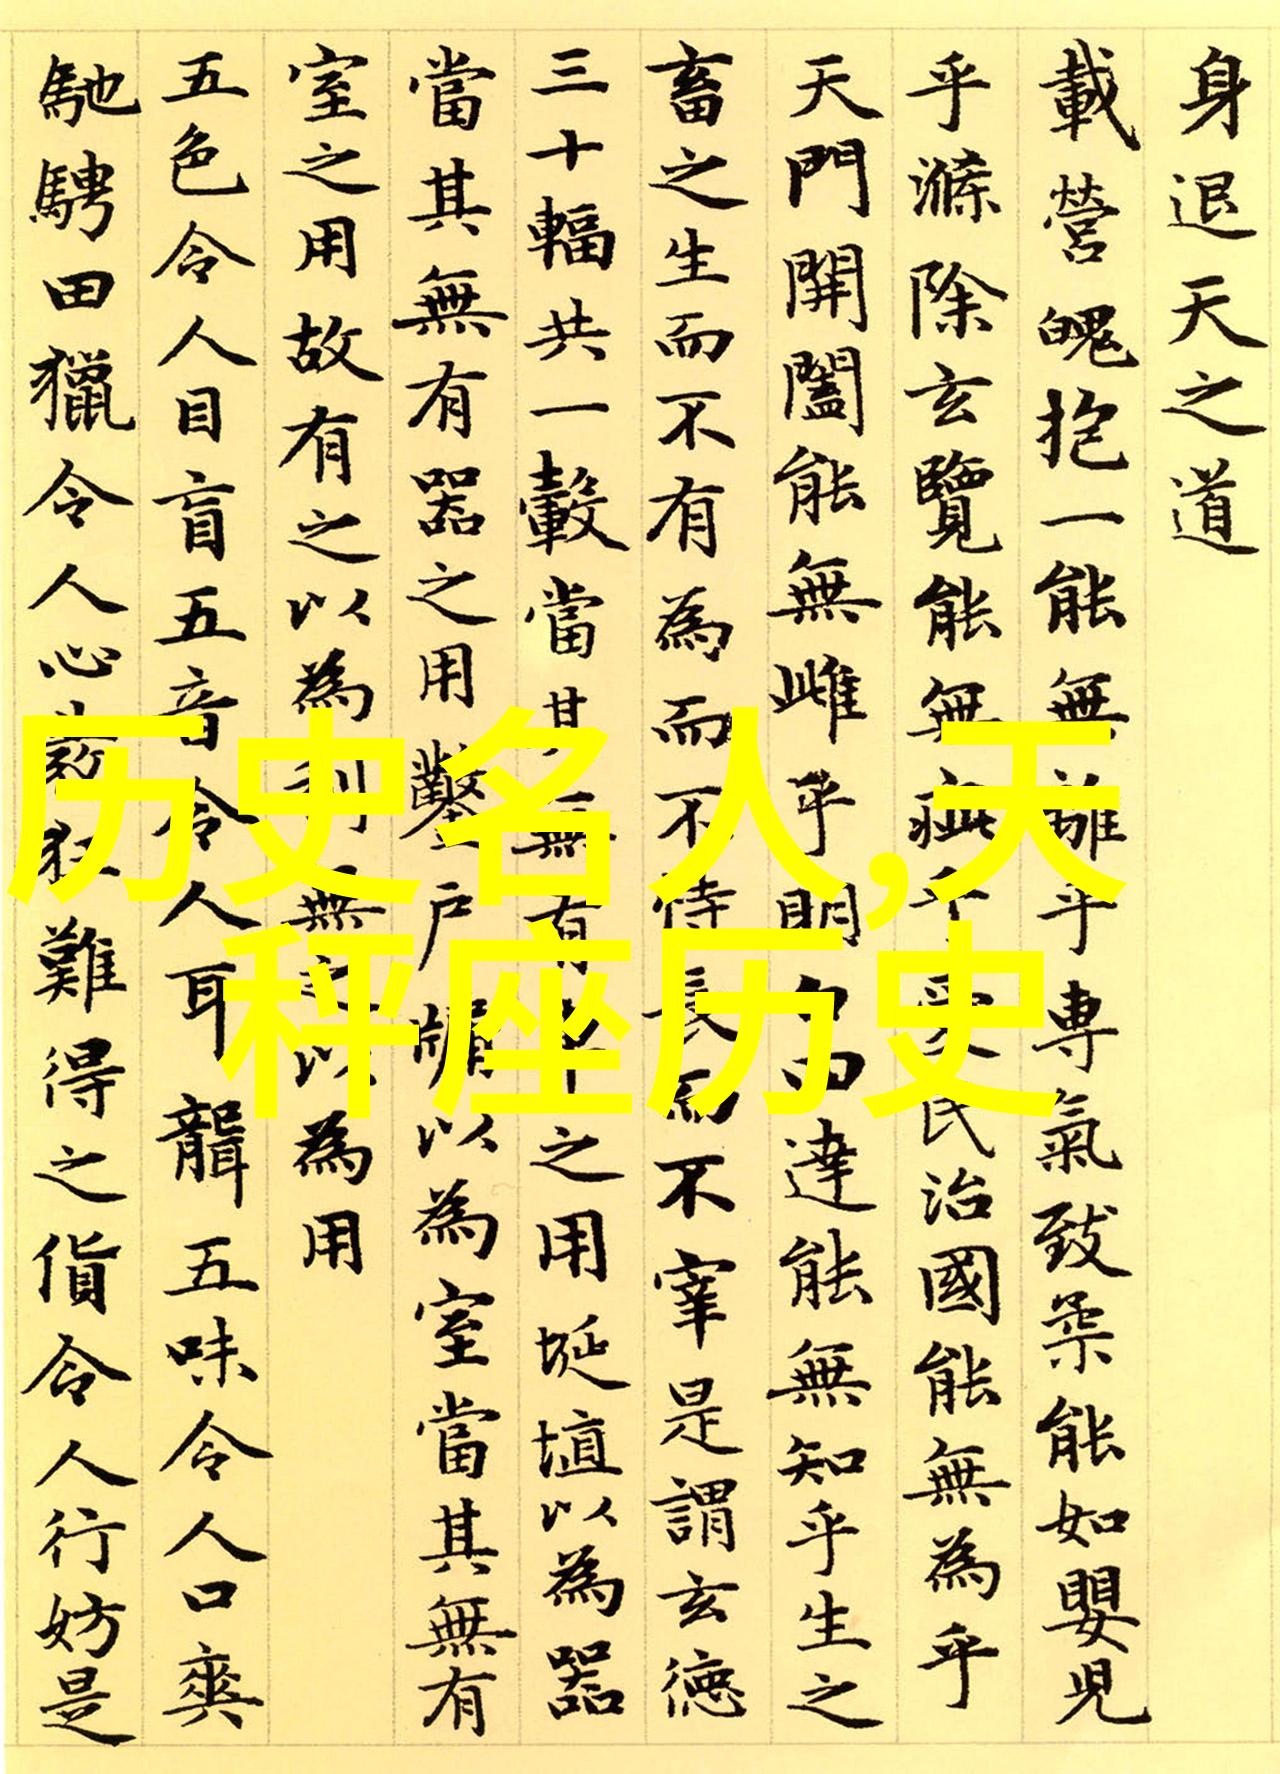 身退天之道
載營魄抱一能無離乎專氣致柔能如嬰兒
乎滌除玄覽能無疵乎愛民治國能無為乎
天門開闔能無雌乎明白四達能無知乎生之
畜之生而不有為而不恃長為不宰是謂玄德
三十輻共一轂當其無有車之用埏埴以為器
當其無有器之用鑿戶牖以為室當其無有
室之用故有之以為利無之以為用
五色令人目盲五音令人耳聾五味令人口爽
馳騁田獵令人心發狂難得之貨令人行妨是
历史名人,天
秤座历史